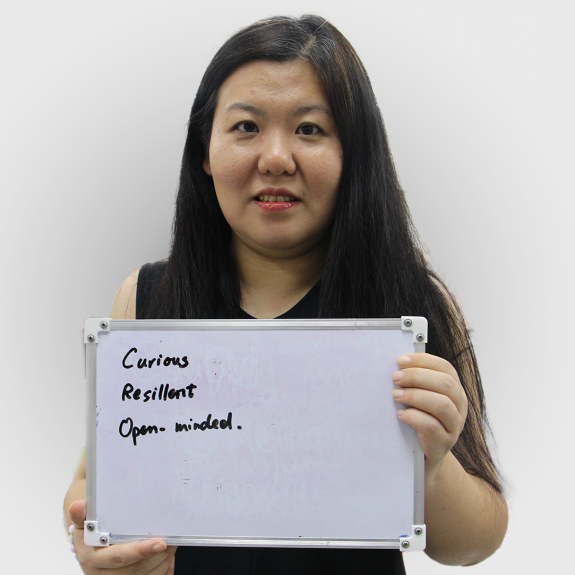 Curious
Resillent
Open- minded.